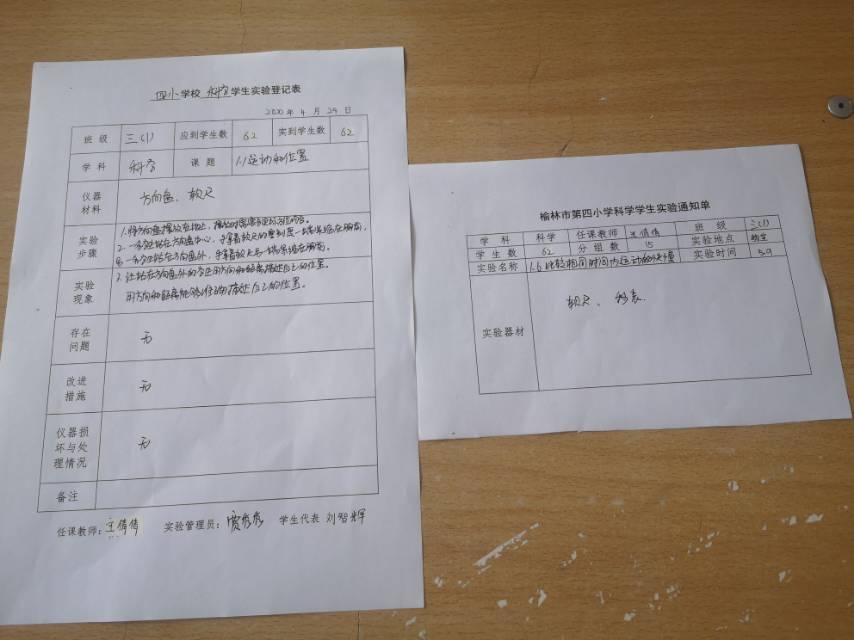 四小学校 科学学生实验登记表
2020 年 4 月 29 日
班 级 三(1) 应到学生数 62 实到学生数 62
学 科 科学 课 题 1.1运动和位置
仪器材料 方向盘、软尺
实验步骤
1.将方向盘摆放在地上,
2.一名学生站在方向盘中心,手拿着软尺的零刻度一端
另一名学生站在方向盘外,手拿着软尺另一端
3.让站在方向盘外的学生用方向和距离描述自己的位置。
实验现象 用方向和距离能够准确描述自己的位置。
存在问题 无
改进措施 无
仪器损坏与处理情况 无
备注
任课教师:王倩倩 实验管理员: 学生代表 刘智辉
榆林市第四小学科学学生实验通知单
学 科 科学 任课教师 王倩倩 班 级 三(1)
学 生 数 62 分 组 数 15 实验地点
实验名称 1.6比较相同时间内运动的快慢 实验时间 5.9
实验器材 软尺、秒表.